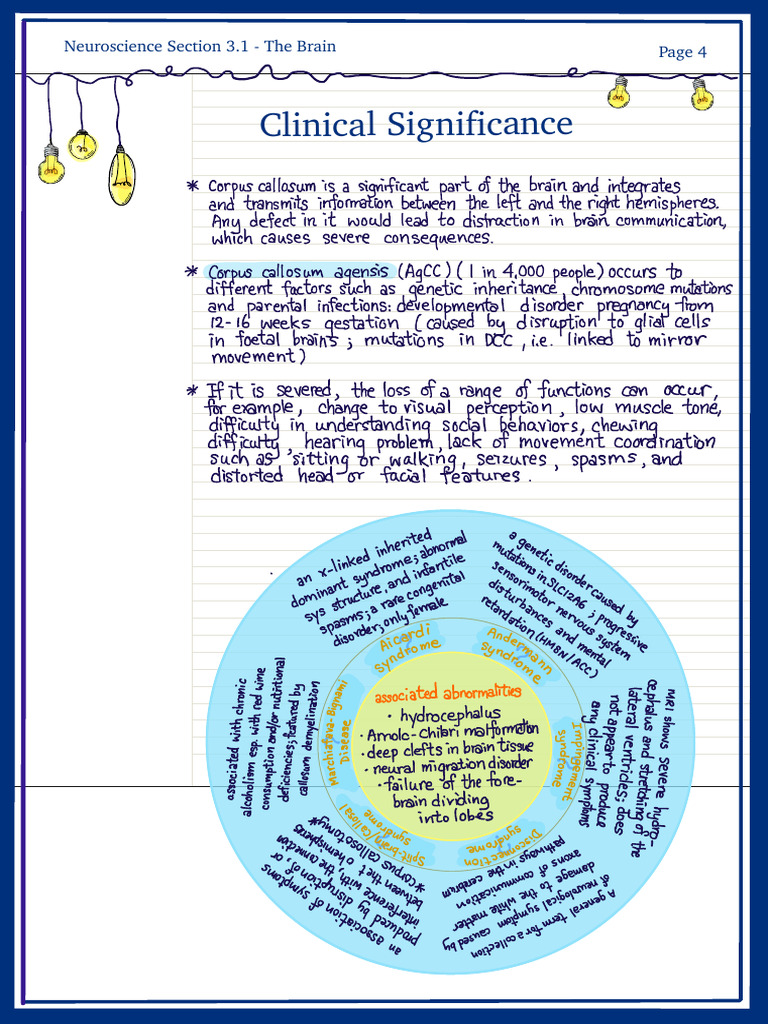 Neuroscience Section 3.1 - The Brain
Page 4
Clinical Significance
* Corpus callosum is a significant part of the brain and integrates
and transmits information between the left and the right hemispheres.
Any defect in it would lead to distraction in brain communication,
which causes severe consequences.
* Corpus callosum agensis (AgCC) (1 in 4,000 people) occurs to
different factors such as genetic inheritance, chromosome mutations
and parental infections: developmental disorder pregnancy from
12-16 weeks gestation (caused by disruption to glial cells
in foetal brains; mutations in DCC, i.e. linked to mirror
movement)
* If it is severed, the loss of a range of functions can occur,
for example, change to visual perception, low muscle tone,
difficulty in understanding social behaviors, chewing
difficulty, hearing problem, lack of movement coordination
such as sitting or walking, seizures, spasms, and
distorted head or facial features.
an x-linked inherited
dominant syndrome; abnormal
sys structure, and infantile
spasms; a rare congenital
disorder; only female
Aicardi
syndrome
a genetic disorder caused by
mutations in SLC12A6; progressive
sensorimotor nervous system
disturbances and mental
retardation (HMSN/ACC)
Andermann
syndrome
MRI shows severe hydro-
cephalus and stretching of the
lateral ventricles; does
not appear to produce
any clinical symptoms
Impingement
syndrome
A general term for a collection
of neurological symptom caused by
damage to the white matter
axons of communication
pathways in the cerebrum
Disconnection
syndrome
an association of symptoms
produced by disruption of, or
interference with, the connection
between the t o hemispheres
*corpus callosotomy*
Split-brain/callosal
syndrome
associated with chronic
alcoholism esp. with red wine
consumption and/or nutritional
deficiencies; featured by
callosum demyelination
Marchiafava-Bignami
Disease
associated abnormalities
· hydrocephalus
· Arnolo-Chibri malformation
· deep clefts in brain tissue
· neural migration disorder
· failure of the fore-
brain dividing
into lobes